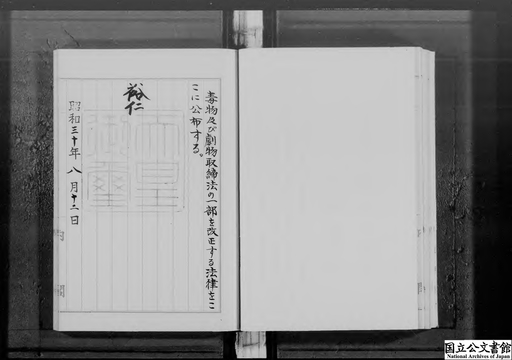 毒物及び劇物取締法の一部を改正する法律をこ
こに公布する。
裕仁
天皇
御璽
昭和三十年八月十二日
国立公文書館
National Archives of Japan